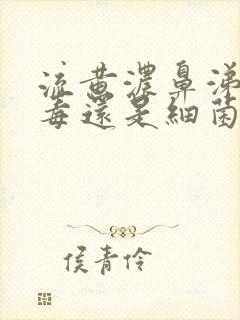 流黄濃鼻涕
毒還是細菌
侯青伶